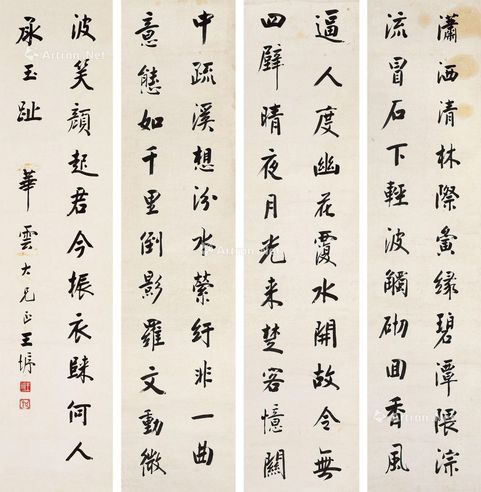 瀟洒清林際夤緣碧潭隈淙
流冒石下輕波觸砌回香風
逼人度幽花覆水開故令無
四壁晴夜月光来楚客憶關
中疏溪想汾水縈紆非一曲
意態如千里倒影羅文動微
波笑顏起君今振衣歸何人
承玉趾
華雲大兄正王
Artron.Net